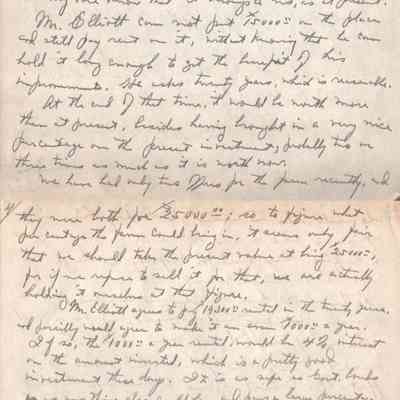 Mr. Elliott can not put 15,000 on the place
and still pay rent on it, without knowing that he can
hold it long enough to get the benefit of his
improvements. He asks twenty years, which is reasonable.
At the end of that time, it would be worth more
than at present, besides having brought in a very nice
percentage on the present investment, probably two or
three times as much as it is worth now.
We have had only two offers for the farm recently, and
4/ they were both for $25000.00; so, to figure what
percentage the farm could bring in, it seems only fair
that we should take the present value at being 25000,
for if we refuse to sell it for that, we are actually
holding it ourselves at that figure.
Mr. Elliott agrees to pay 19,300 rental in the twenty years,
and possibly would agree to make it an even 1000 a year.
If so, the 1000 a year rental would be 4% interest
on the amount invested, which is a pretty good
investment these days. It is as safe as Govt. bonds